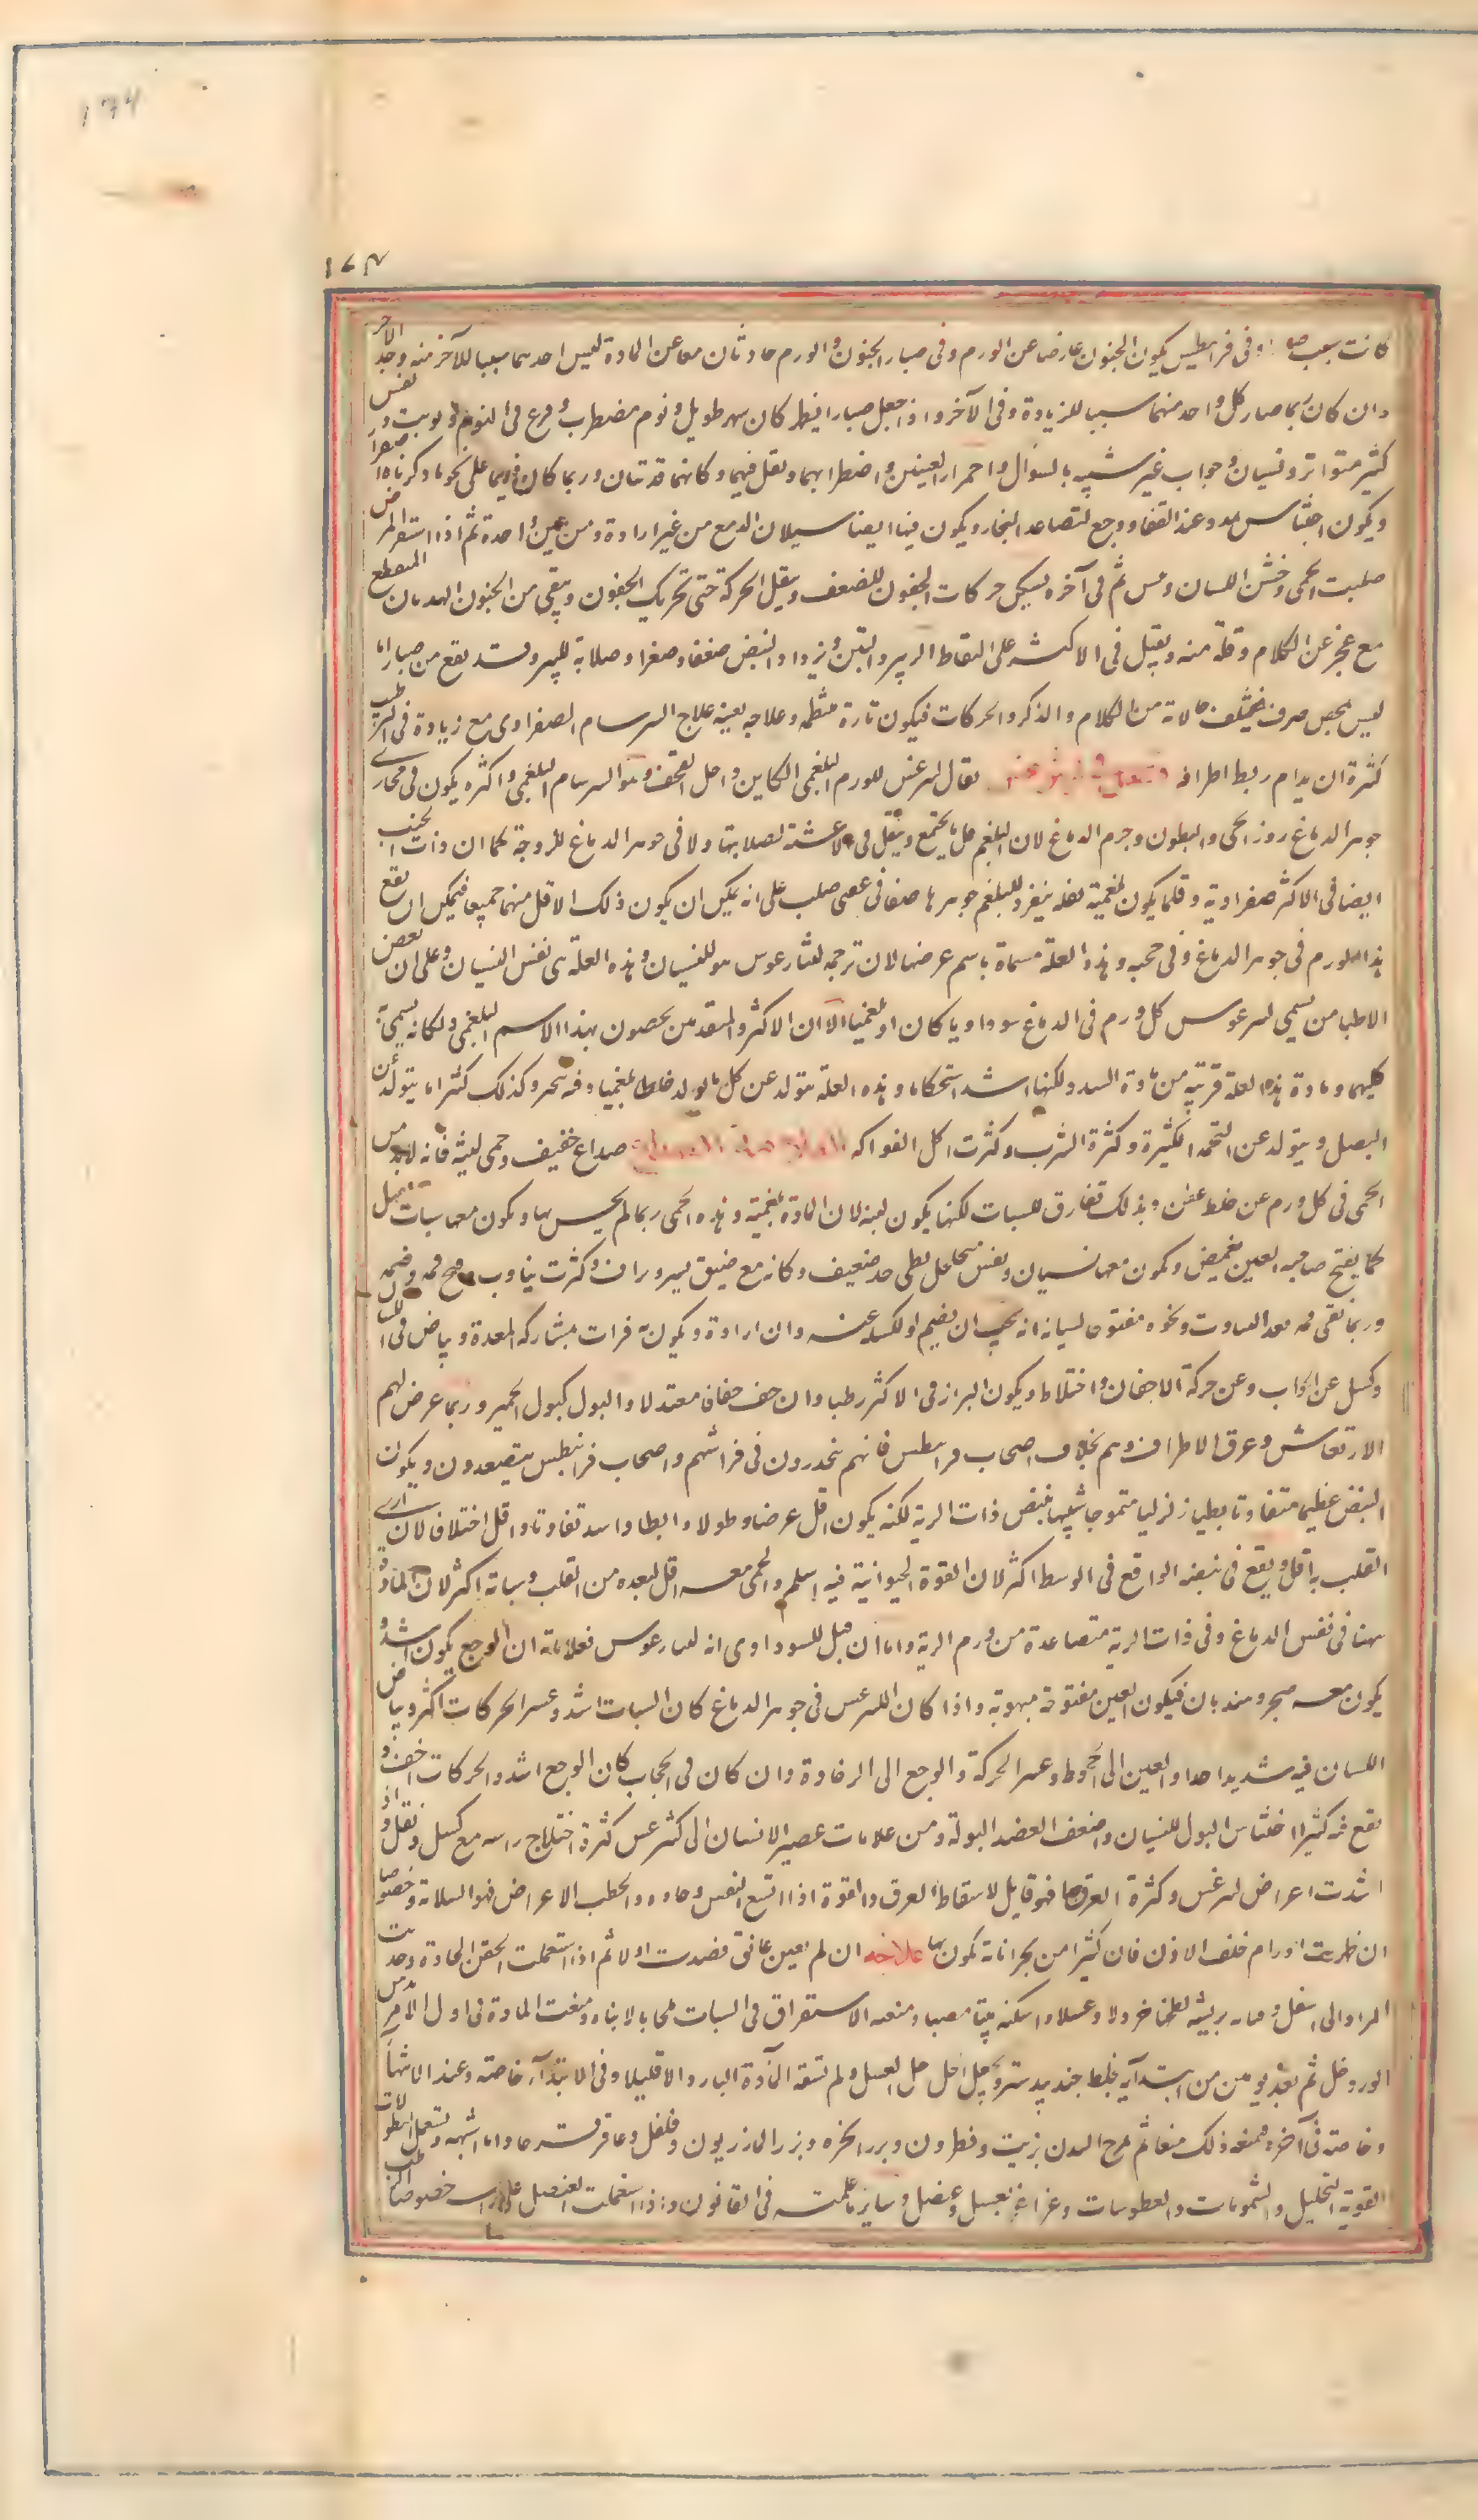 ١٧٤
١٧٣
كانت بسبب وفى فرانيطس يكون الجنون عارضا عن الورم وفى صبارا الجنون والورم حادثان معا عن المادة ليس احدهما سببا للآخر منه وجد الآخر
وان كان ربما صار كل واحد منهما سببا للزيادة وفى الآخر واذا جعل صبارا يظهر كان سهر طويل ونوم مضطرب وفزع فى النوم ووثوب ونفس
كثير متواتر ونسيان وجواب غير شبيه بالسؤال واحمرار العينين واضطرابهما وثقل فيهما وكانهما قذيتان وربما كان فيهما على نحو ما ذكرناه اصفرار
ويكون احتباس عند القفا ووجع لتصاعد البخار ويكون فيها ايضا سيلان الدمع من غير ارادة ومن عين واحدة ثم اذا استقر المرض
صلبت الحمى وخشن اللسان ويبس ثم فى آخره تسكن حركات الجفون للضعف ويثقل الحركة حتى تحريك الجفون ويبقى من الجنون الهذيان المتقطع
مع عجز عن الكلام وقلة منه ويقبل فى الاكثر على التقاط الزيبر والتبن ويزداد النبض ضعفا وصغرا وصلابة لليبس وقد يقع من صبارا ما
ليس بمحض صرف فيختلف حالاته من الكلام والذكر والحركات فيكون تارة منتظمة وعلاجه بعينه علاج السرسام الصفراوى مع زيادة فى الترطيب
كثيرة ان يدام ربط اطرافه فصل فى ليثرغس يقال ليثرغس للورم البلغمى الكاين داخل القحف وهو السرسام البلغمى واكثره يكون فى مجارى
جوهر الدماغ دون الحجب والبطون وجرم الدماغ لان البلغم قل ما يجتمع وينفذ فى الاغشية لصلابتها ولا فى جوهر الدماغ للزوجته كما ان ذات الجنب
ايضا فى الاكثر صفراوية وقلما يكون بلغمية لقلة نفوذ البلغم جوهرها صفاقى عصبى صلب على انه يمكن ان يكون ذلك الاقل منهما جميعا فيمكن ان يقع
هذا الورم فى جوهر الدماغ وفى حجبه وهذه العلة مسماة باسم عرضها لان ترجمة ليثارغوس هو النسيان وهذه العلة هى نفس النسيان وعلى ان بعض
الاطبا من يسمى ليثرغوس كل ورم فى الدماغ سوداويا كان او بلغميا الا ان الاكثر والمتقدمين يخصون بهذا الاسم البلغمى ولكانه يسمى به
كليهما ومادة هذه العلة قريبة من مادة السدر ولكنها اشد استحكاما وهذه العلة تتولد عن كل ما يولد خلطا بلغميا وفيه تبخير وكذلك كثيرا ما يتولد عن
البصل ويتولد عن التخمة الكثيرة وكثرة الشرب وكثرت اكل الفواكه العلامات صداع خفيف وحمى لينة فانه لابد من
الحمى فى كل ورم عن خلط عفن وبذلك تفارق السبات لكنها يكون لينة لان المادة بلغمية وهذه الحمى ربما لم يحس بها ويكون معها سبات ثقيل
كما يفتح صاحبه العين يغمض ويكون معها نسيان ونفس متخلخل بطى جدا ضعيف وكانه مع ضيق يسير وبزاق وكثرت تثاوب وفتح فمه وضمه
وربما بقى فمه بعد التثاوب ونحوه مفتوحا لنسيانه انه يجب ان يضم او لكسله عنه وان اراده ويكون به فواق بمشاركة المعدة وبياض فى اللسان
وكسل عن الجواب وعن حركة الاجفان واختلاط ويكون البراز فى الاكثر رطبا وان جف جفافا معتدلا والبول كبول الحمير وربما عرض لهم
الارتعاش وعرق الاطراف وهم بخلاف اصحاب فرانيطس فانهم ينحدرون فى فراشهم واصحاب فرانيطس يتصعدون ويكون
النبض عظيما متفاوتا بطيا زلزليا متموجا شبيها بنبض ذات الرية لكنه يكون اقل عرضا وطولا وابطا واشد تفاوتا واقل اختلافا لان تاذى
القلب به اقل ويقع فى نبضه الواقع فى الوسط اكثر لان القوة الحيوانية فيه اسلم والحمى معه اقل لبعده من القلب وسباته اكثر لان المادة
هنا فى نفس الدماغ وفى ذات الرية متصاعدة من ورم الرية واما ان قيل للسوداوى انه ليثارغوس فعلاماته ان الوجع يكون اشد و
يكون معه ضجر وهذيان فيكون العين مفتوحة مبهوتة واذا كان الليثرغس فى جوهر الدماغ كان السبات اشد وعسر الحركات اكثر وبياض
اللسان فيه شديدا جدا والعين الى الجحوظ وعسر الحركة والوجع الى الرخاوة وان كان فى الحجاب كان الوجع اشد والحركات اخف و
يقع فيه كثيرا احتباس البول للنسيان واضعف العضد البولة ومن علامات مصير الانسان الى ليثرغس كثرة اختلاج راسه مع كسل وثقل واذا
اشتدت اعراض ليثرغس وكثرة العرق جدا فهو قاتل لاسقاط العرق والقوة اذا اتسع النفس وجاد وانحطت الاعراض فهو السلامة وخصوصا
ان ظهرت اورام خلف الاذن فان كثيرا من بحراناته تكون بها علاجه ان لم يعين عائق فصدت اولا ثم اذا استعملت الحقن الحادة وجذبت
المواد الى اسفل وقياته بريشة لطختها خردلا وعسلا واسكنه بيتا مضيئا ومنعته الاستغراق فى السبات ملحا بالانباه ومنعت المادة فى اول الامر بدهن
الورد وخل ثم بعد يومين من ابتدائه يخلط جندبيدستر ويجعل الخل خل العنصل ولم تسقه الماء البارد الا قليلا وفى الابتداء خاصة وعند الانتهاء
وخاصة فى آخره تمنعه ذلك منعا ثم تمرخ البدن بزيت ونطرون وبزر الانجره وبزر المازريون وفلفل وعاقرقرحا وما اشبهه وتستعمل النطولات
القوية التحليل والشمومات والعطوسات وغراغر بعسل وعنصل وساير ما علمته فى القانون واذا استعملت العنصل على راسه خصوصا الرطب